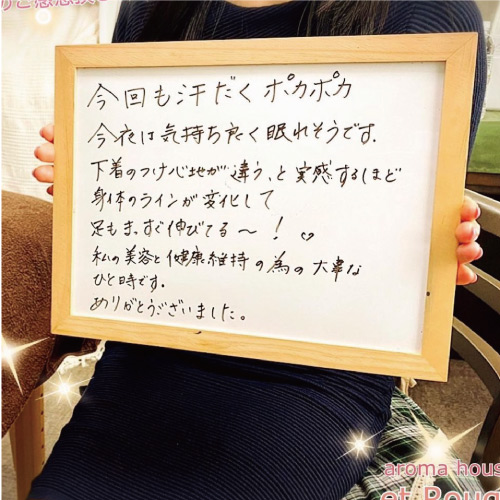 のご感想
今回も汗だくポカポカ
今夜は気持ち良く眠れそうです.
下着のつけ心地が違う、と実感するほど
身体のラインが変化して
足もまっすぐ伸びてる〜!♡
私の美容と健康維持の為の大事な
ひと時です.
ありがとうございました。
aroma hous
et Boug